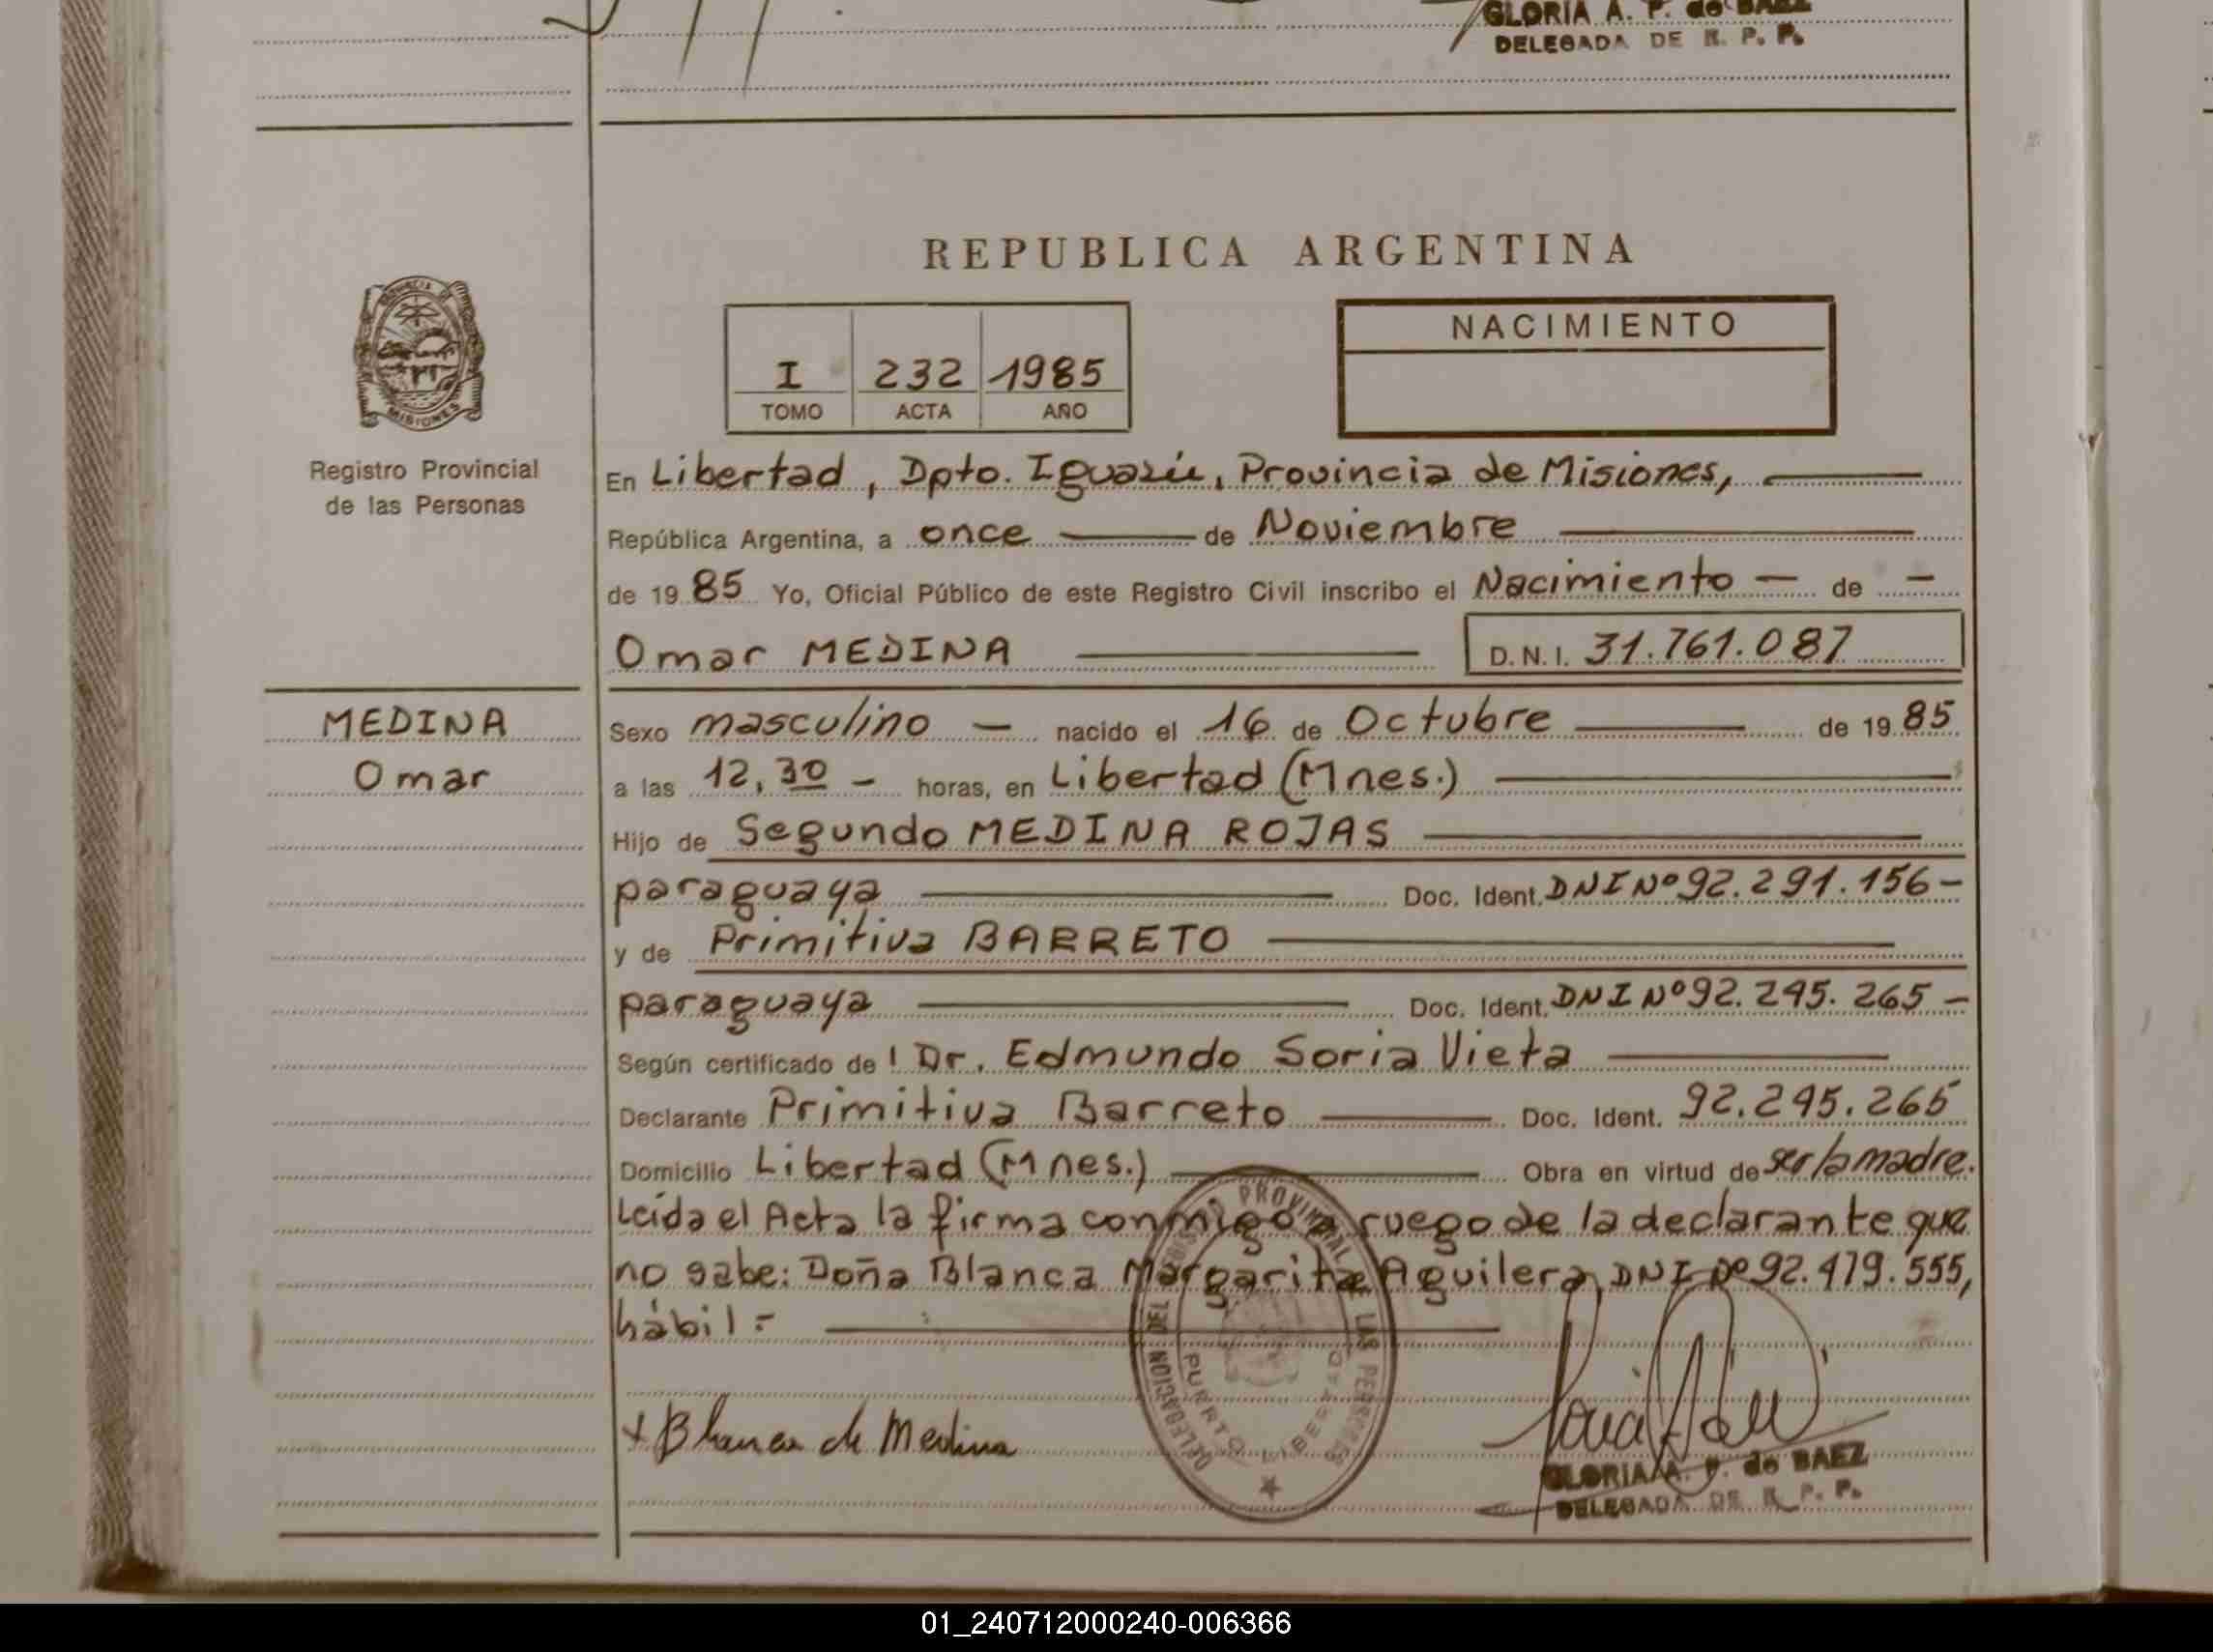 GLORIA A. P. de BAEZ
DELEGADA DE R. P. P.
REPUBLICA ARGENTINA
NACIMIENTO
I 232 1985
TOMO ACTA AÑO
PROVINCIA DE
MISIONES
Registro Provincial
de las Personas
En Libertad, Dpto. Iguazú, Provincia de Misiones,
República Argentina, a once de Noviembre
de 1985 Yo, Oficial Público de este Registro Civil inscribo el Nacimiento — de —
Omar MEDINA
D. N. I. 31.761.087
MEDINA
Omar
Sexo masculino — nacido el 16 de Octubre de 1985
a las 12,30 — horas, en Libertad (Mnes.)
Hijo de Segundo MEDINA ROJAS
paraguaya Doc. Ident. DNI Nº 92.291.156 —
y de Primitiva BARRETO
paraguaya Doc. Ident. DNI Nº 92.295.265 —
Según certificado de l Dr. Edmundo Soria Vieta
Declarante Primitiva Barreto Doc. Ident. 92.295.265
Domicilio Libertad (Mnes.) Obra en virtud de ser la madre.
Leída el Acta la firma conmigo a ruego de la declarante que
no sabe: Doña Blanca Margarita Aguilera, DNI Nº 92.479.555,
hábil =
DELEGACION DEL REGISTRO PROVINCIAL DE LAS PERSONAS
PUERTO LIBERTAD
+ Blanca de Medina
GLORIA A. P. de BAEZ
DELEGADA DE R. P. P.
01_240712000240-006366